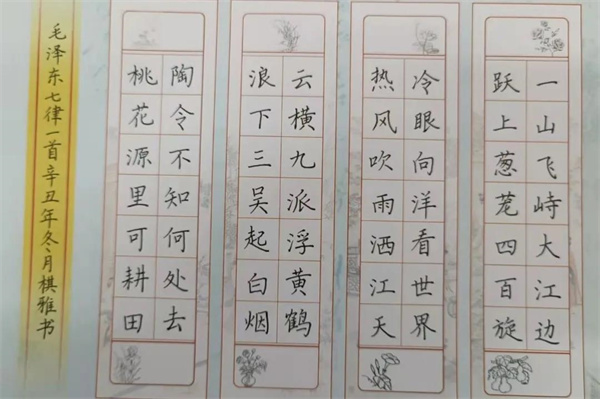 一山飞峙大江边
跃上葱茏四百旋
冷眼向洋看世界
热风吹雨洒江天
云横九派浮黄鹤
浪下三吴起白烟
陶令不知何处去
桃花源里可耕田
毛泽东七律一首辛丑年冬月棋雅书